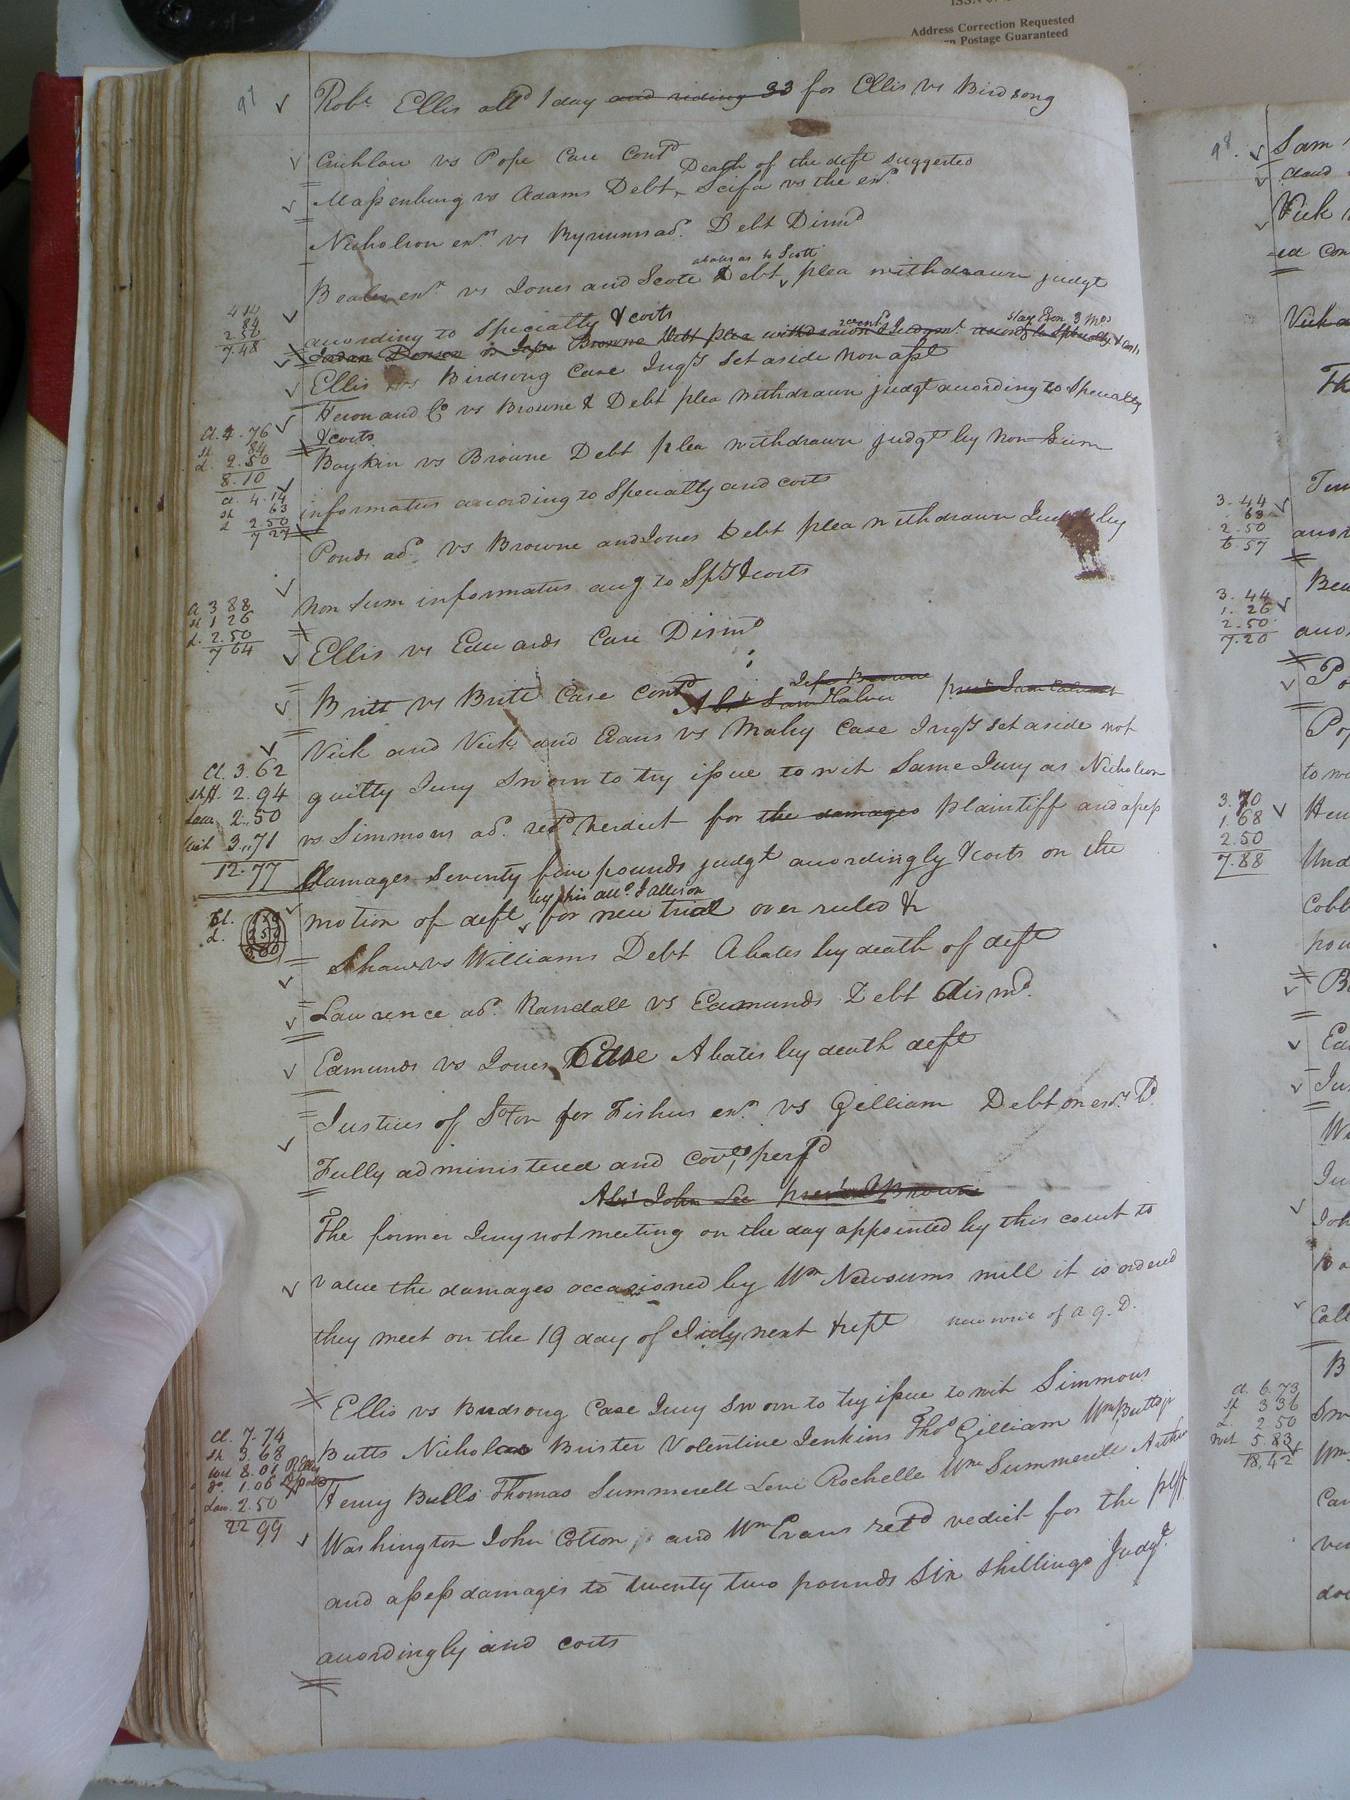 Address Correction Requested
Postage Guaranteed
97
Robt Ellis attd 1 day and riding 33 for Ellis vs Birdsong
Crichlow vs Pope Case Contd
Death of the deft suggested
Massenburg vs Adams Debt Scifa vs the exr
Nicholson exr vs Byrnums adr Debt Dismd
abates as to Scott
exr vs Jones and Scott Debt plea withdrawn judgt
according to Specialty & costs
414
84
2.50
7.48
Browne Debt plea withdrawn & Judgmt
stay Exon 3 mos
Ellis vs Birdsong Case Inqy Set aside non asst
Heron and Co vs Browne & Debt plea withdrawn judgt according to Specialty
& costs
Cl. 4.76
sh 84
L. 2.50
8.10
Boykin vs Browne Debt plea withdrawn judgt by non Sum
informatus according to Specialty and costs
Cl 4.14
sh 63
L 2.50
7.27
Ponds adr vs Browne and Jones Debt plea withdrawn Judgt by
non Sum informatus accg to Splty & costs
Cl 3.88
sh 1.26
L. 2.50
7 64
Ellis vs Edwards Case Dismd
Britt vs Britt Case Contd
Jesse Browne
Vick and Vick and Evans vs Maley Case Inqy set aside not
guilty Jury Sworn to try issue to wit Same Jury as Nicholson
vs Simmons adr retd Verdict for the damages plaintiff and assess
damages Seventy five pounds judgt accordingly & costs on the
by his atto J Allison
motion of deft for new trial over ruled &
Cl. 3.62
shff. 2.94
Law. 2.50
Wit 3.71
12.77
Cl.
L.
Shaw vs Williams Debt Abates by death of deft
Lawrence adr Randall vs Edmunds Debt Dismd.
Edmunds vs Jones Case Abates by death deft
Justices of Soton for Fishers exr vs Gilliam Debt on exrs Bd
Fully administered and Covts perfd
Abst John Lee prest Browne
The former Jury not meeting on the day appointed by this court to
value the damages occasioned by Wm Newsums mill it is ordered
they meet on the 19 day of July next & rept new writ of a.q.d.
Ellis vs Birdsong Case Jury Sworn to try issue to wit Simmons
Butts Nicholas Brister Volentine Jenkins Thos Gilliam Wm Butts jr
Henry Bulls Thomas Summerell Levi Rochelle Wm Summerell Arthur
Washington John Cotton jr and Wm Evans retd vedict for the plff
and assess damages to twenty two pounds Six shillings Judgt.
accordingly and costs
Cl. 7.74
sh. 3.68
wit 8.01 R Ellis
do. 1.06
Law. 2.50
22 99
98.
Sam
Vick
ed con
3.44
63
2.50
6.57
3.44
1.26
2.50
7.20
3.70
1.68
2.50
7.88
to wi
Und
Cobb
Cl. 6.73
sh 3 36
L. 2 50
wit 5.83
18,42